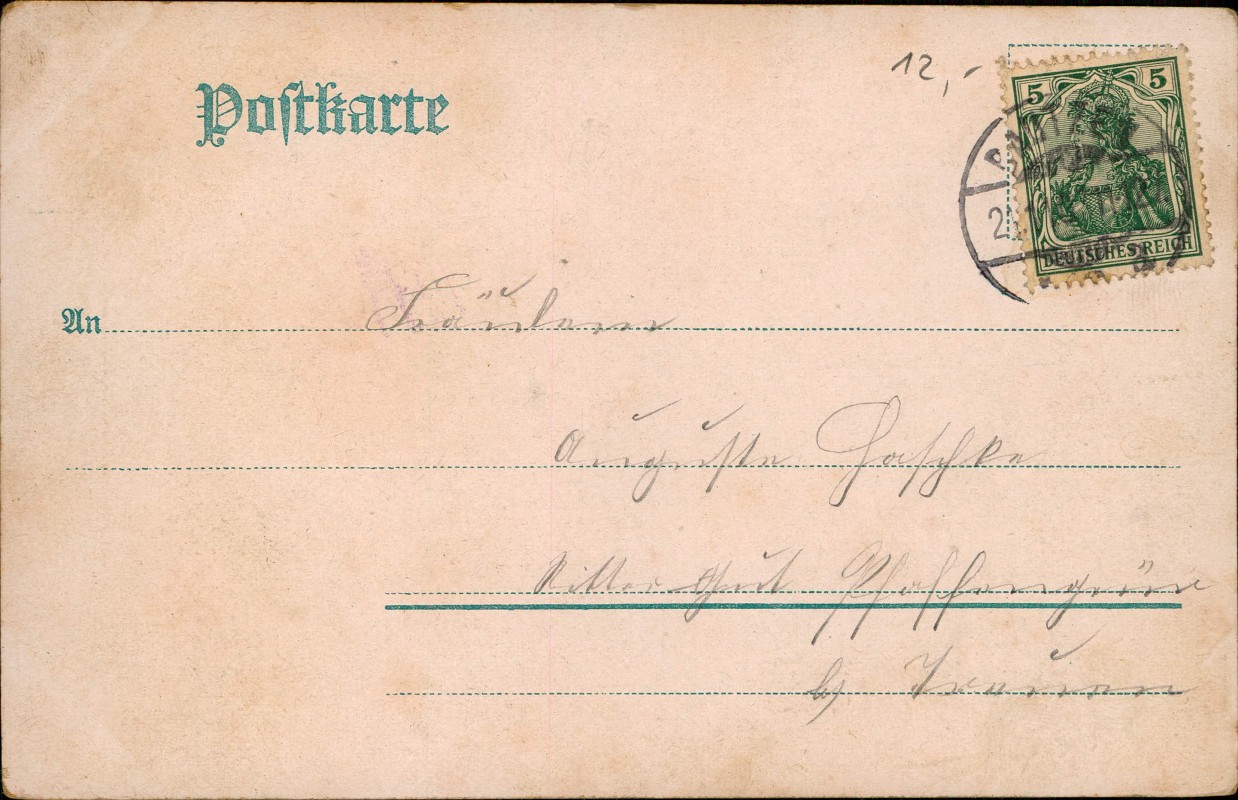 Postkarte
12,-
5 5
DEUTSCHES REICH
An Fräulein
Auguste Paschke
Ritter Gut Pfaffengrün
b/ Treuen